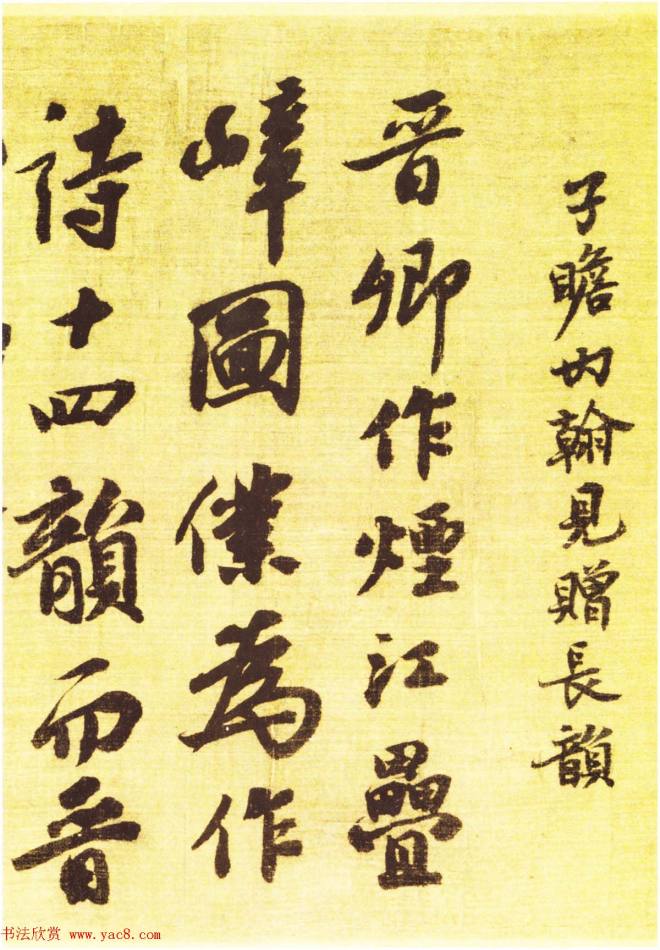 子瞻内翰見贈長韻
晉卿作煙江疊
嶂圖僕為作
詩十四韻而晉
书法欣赏 www.yac8.com